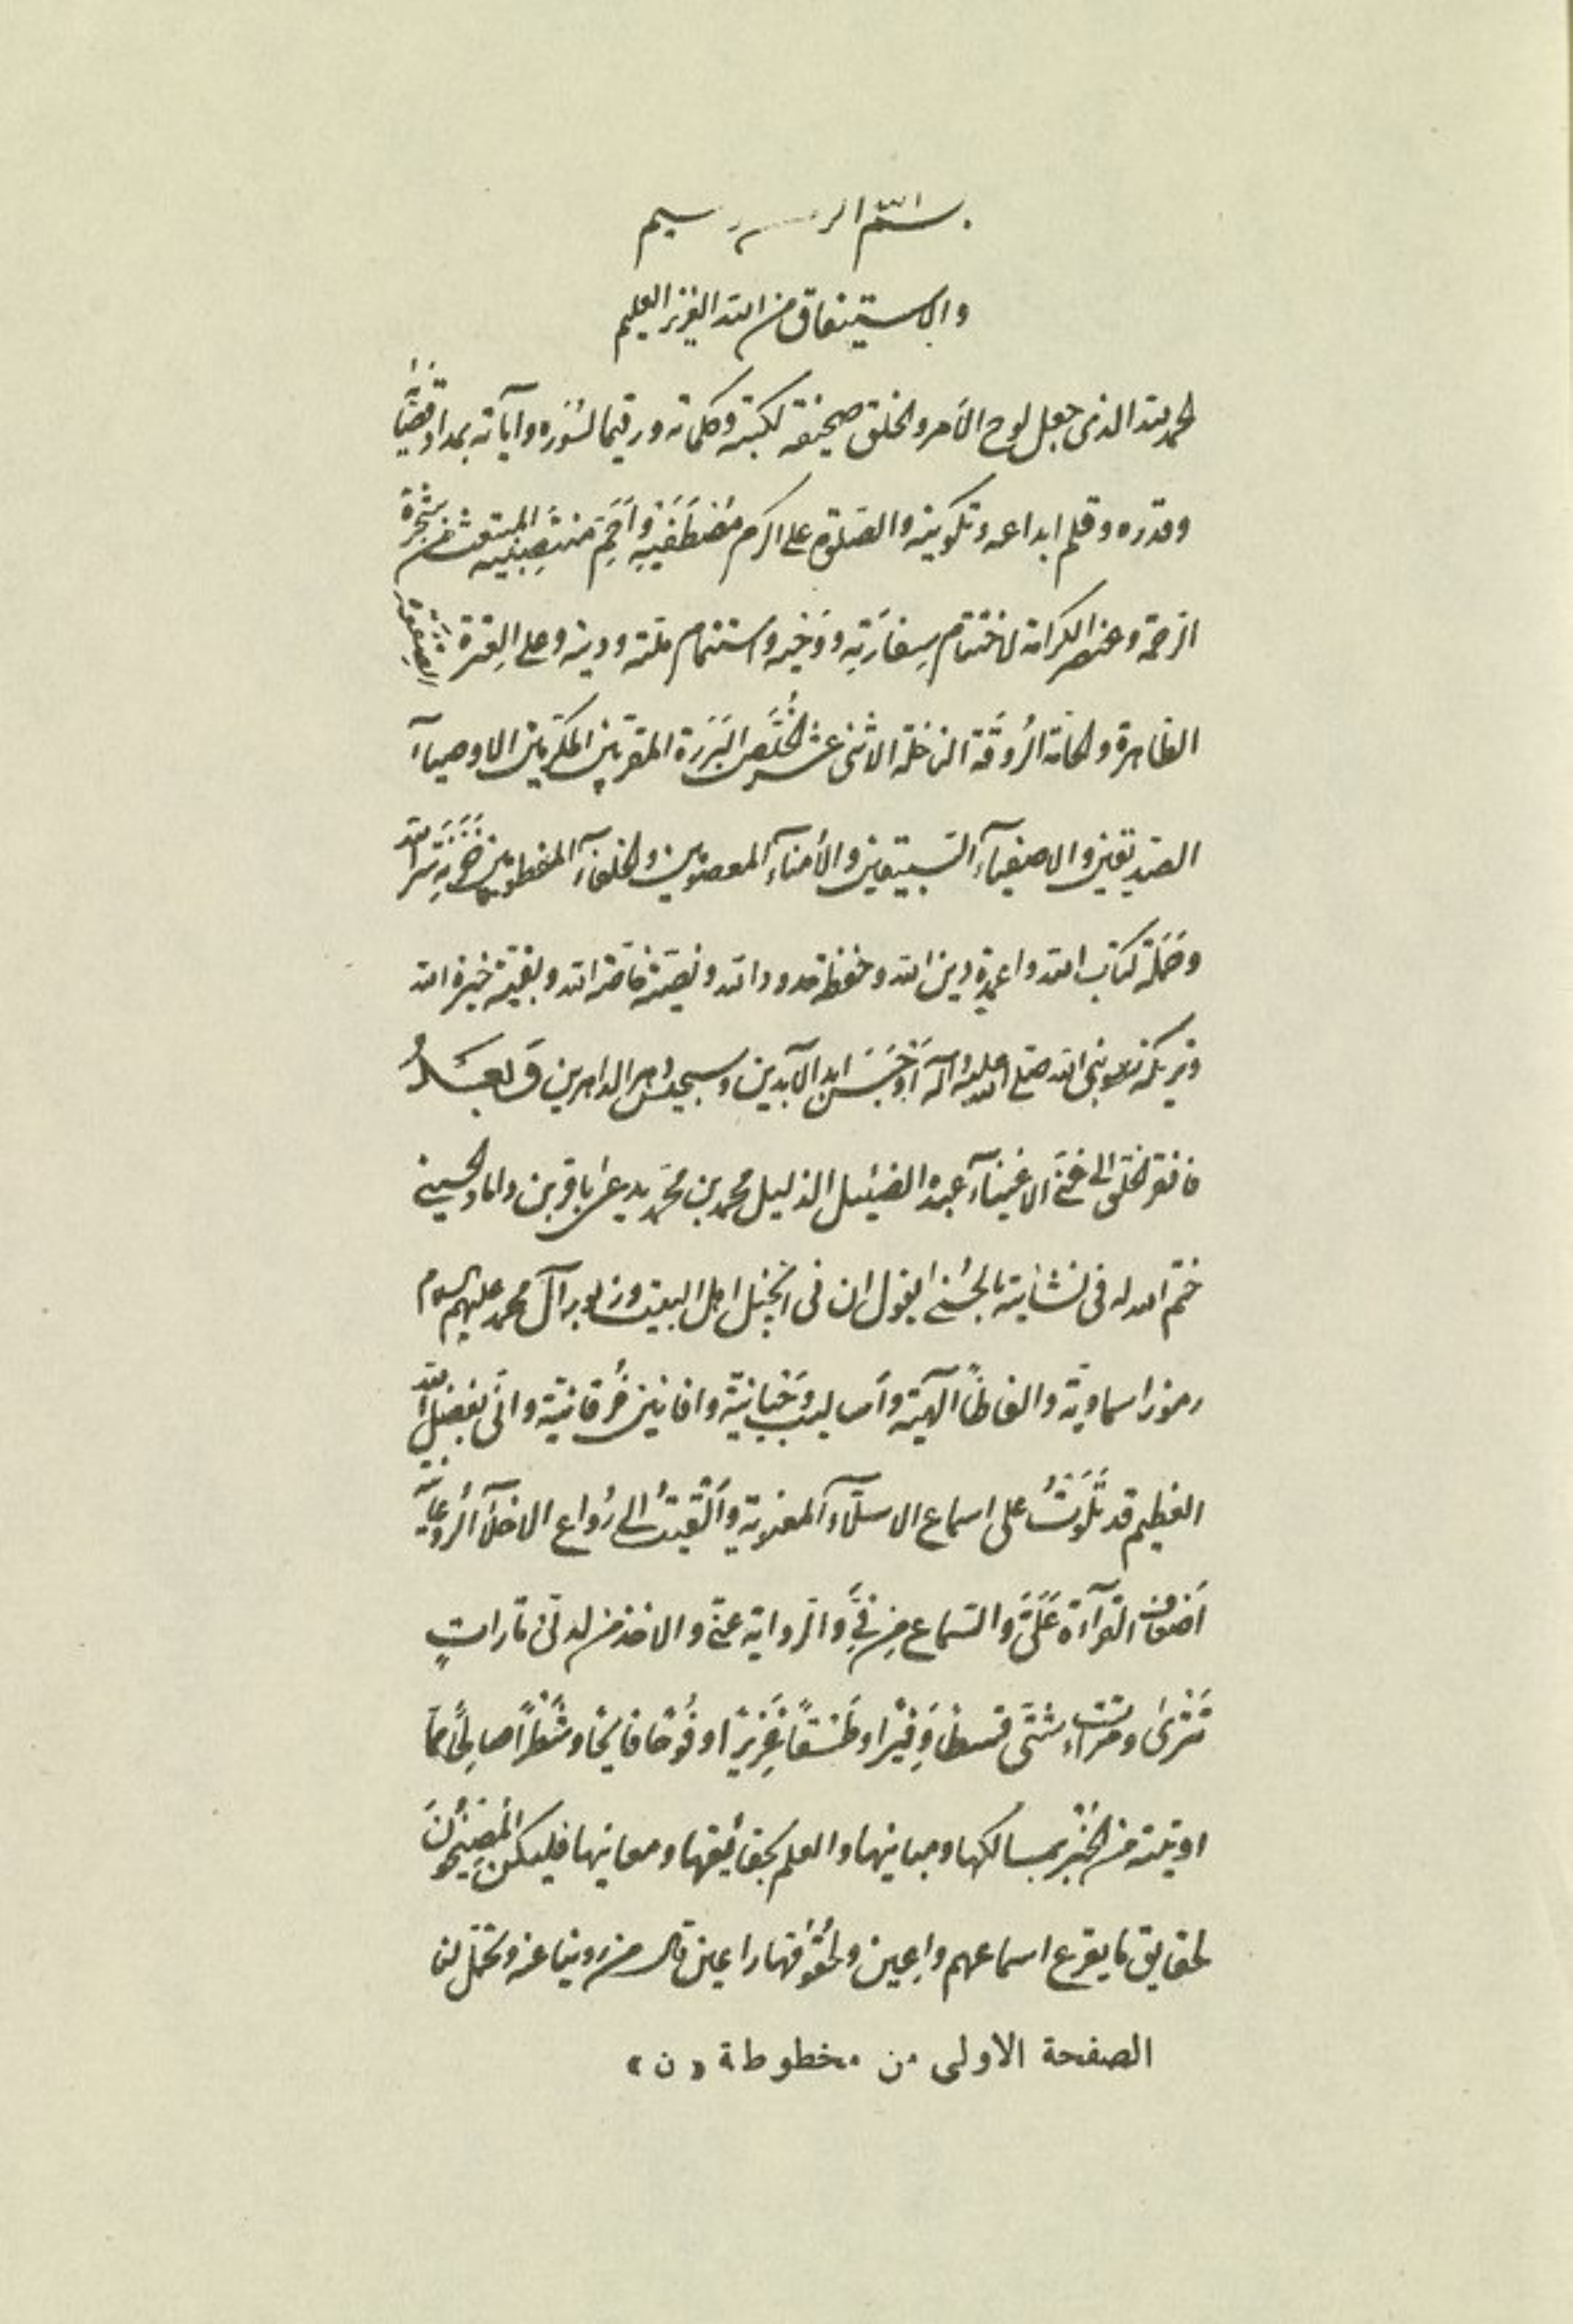 بسم الله الرحمن الرحيم
والاستيفاق من الله العزيز العليم
الحمد لله الذى جعل لوح الأمر والخلق صحيفة لكتبه وكلماته ورقيما لسُوَره وآياته بمداد قضائه
وقدره وقلم ابداعه وتكوينه والصلوة على اكرم مُصْطَفَيْهِ وأختم منتجبيه المنبعث من شجرة
الرحمة وعنصر الكرامة لاختتام سِفارَتِه ووَحْيِه واستتمام ملته ودينه وعلى العِترة
الطاهرة والحامّة الاثنى عشر الخُلَّص البَرَرَة المقربين المكرمين الاوصياآء
الصديقين والاصفيآء السبيقين والأمنآء المعصومين والخلفآء المفطومين خَزَنَة سرّ الله
وحَمَلَة كتاب الله واعمدة دين الله وحفظة حدود الله وبقية خيرة الله
وتريكة نبى الله صلى الله عليه وآله ابد الآبدين وسجيس دهر الداهرين وَبَعْدُ
فافقر الخلق الى غنىّ الاغنيآء عبده الضئيل الذليل محمد بن محمد يدعى باقر بن داماد الحسينى
ختم الله له فى نشأتيه بالحسنى يقول ان فى انجيل اهل البيت وزبور آل محمد عليهم السلام
رموزا سماويّة والفاظاً آلهيّة وأساليب وَحْيانيّة وافانين فُرقانيّة وانّى بفضل الله
العظيم قد تَلَوْتُ على اسماع الاسلّآء المعنوية وألْقَيتُ الى رُواع الاخلّآء الرُوعانية
القرآءة عَلَيَّ والسّماع مِن فِيَّ والرواية عنّى والاخذ من لدنّى تاراتٍ
تَتْرىٰ ومرّات شتّى قسطا وَفيْرا وطَسْقاً غزيرا وشَطْراً صالِحاً مما
اوتيته من الخُبْر بمسالكها ومبانيها والعلم بحقائقها ومعانيها فليكن المُصِيخُونَ
لحقايق ما يقرع اسماعهم واعِين ولحُقُوقها راعين قال من روينا عنه وتحمّل لنا
الصفحة الاولى من مخطوطة «ن»